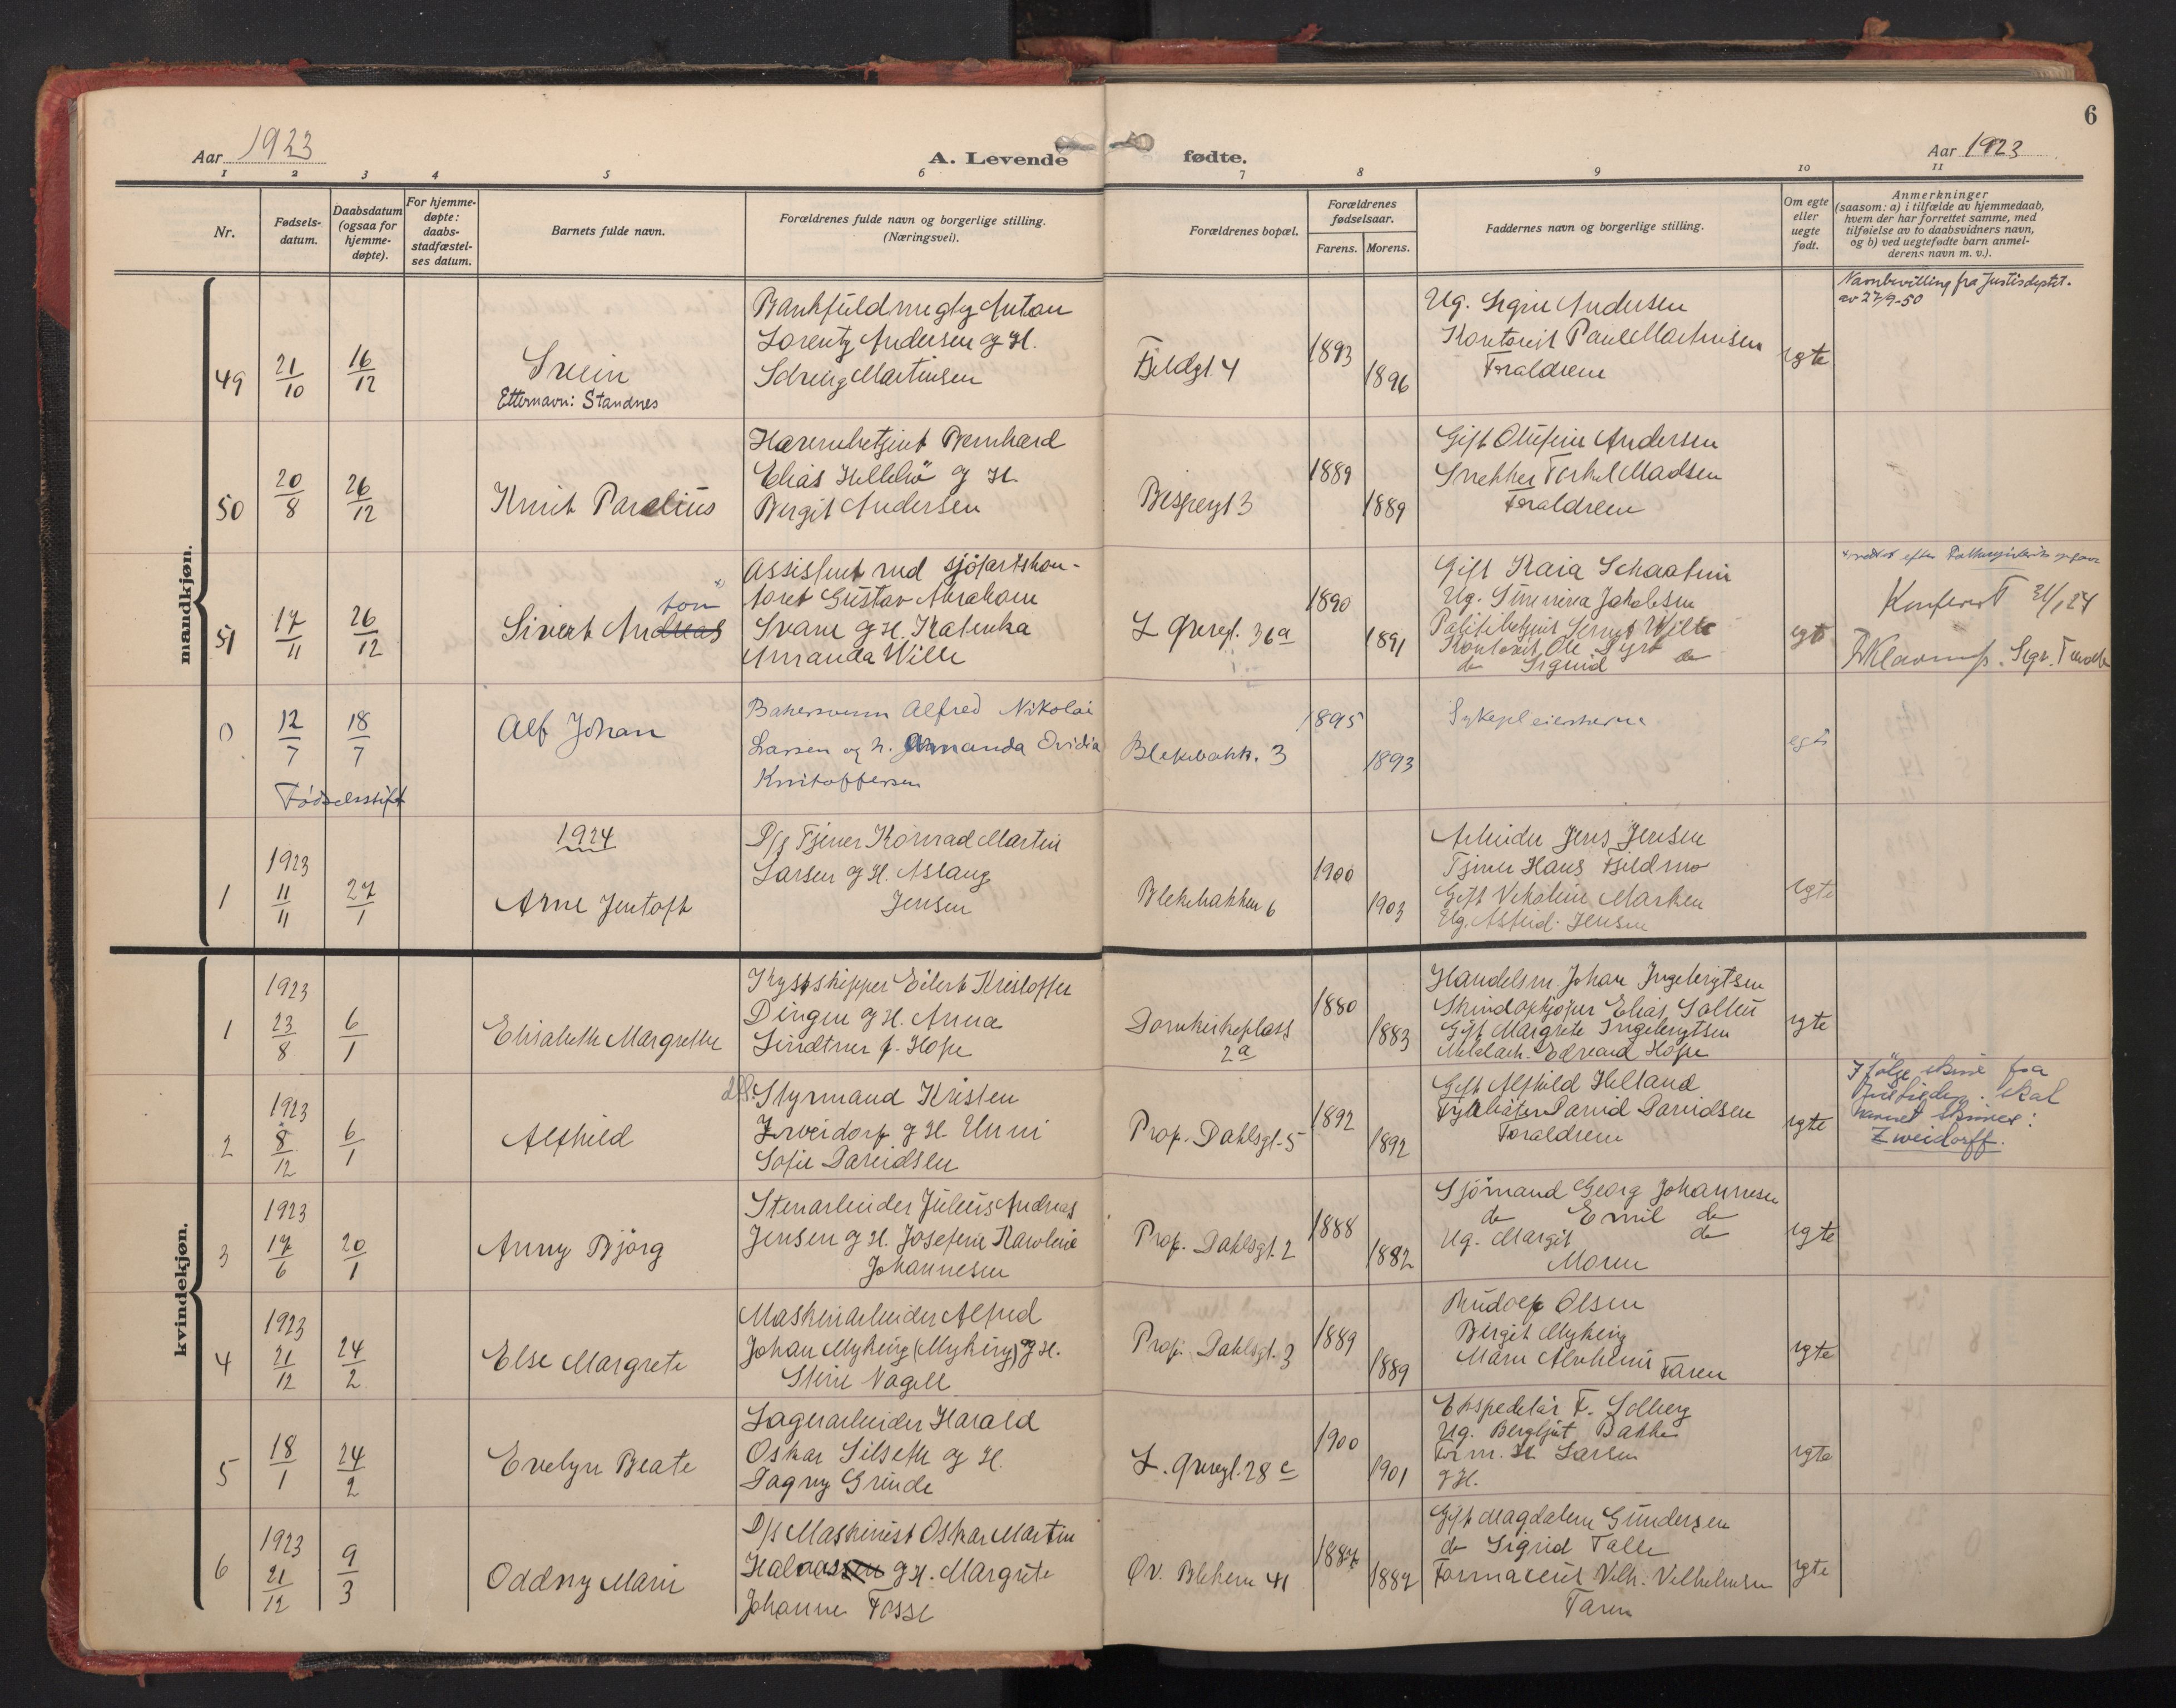 6
Aar 1923
A. Levende
fødte.
Aar 1923
1 2 3 4 5 6 7 8 9 10 11
Nr.
Fødsels-
datum.
Daabsdatum
(ogsaa for
hjemme-
døpte).
For hjemme-
døpte:
daabs-
stadfæstel-
ses datum.
Barnets fulde navn.
Forældrenes fulde navn og borgerlige stilling.
(Næringsvei).
Forældrenes bopæl.
Forældrenes
fødselsaar.
Farens. Morens.
Faddernes navn og borgerlige stilling.
Om egte
eller
uegte
født.
Anmerkninger
(saasom: a) i tilfælde av hjemmedaab,
hvem der har forrettet samme, med
tilføielse av to daabsvidners navn,
og b) ved uegtefødte barn anmel-
derens navn m. v.).
mandkjøn.
49
21/10
16/12
Svein
Etternavn: Standnes
Bankfuldmegtg Anton
Lorentz Andersen og H.
Solveig Martinsen
Fjeldgt. 4
1893
1896
Ug. Signe Andersen
Kontorist Paul Martinsen
Forældrene
egte
Navnbevilling fra Justisdeptet.
av 27/9-50
50
20/8
26/12
Knut Parelius
Havnebetjent Bernhard
Elias Hellesö og H.
Bergit Andersen
Bispegt 3
1889
1889
Gift Olufine Andersen
Snekker Torkel Madsen
Forældrene
51
17/11
26/12
Sivert Andreas
ton
Assistent ved sjøfartskon-
toret Gustav Abraham
Svane og H. Katinka
Amanda Wille
L Øvregt. 36a
1890
1891
Gift Kaia Schaatun
Ug. Sunniva Jakobsen
Politibetjent Sivert Wille
Kontorist Ole Syre
do Sigurd do
egte
Konferert 24/1 24
0
12/7
18/7
Fødselsstift
Alf Johan
Bakersvenn Alfred Nikolai
Larsen og h. Amanda Ovidia
Kristoffersen
Blekebakk. 3
1895
1893
Sykepleierskerne
egte
1924
1
1923
11/11
27/1
Arne Jentoft
D/s Tjener Konrad Martin
Larsen og H. Aslaug
Jensen
Blekebakken 6
1900
1903
Arbeider Jens Jensen
Tjener Hans Fjeldmo
Gift Nikoline Marken
Ug. Astrid Jensen
egte
kvindekjøn.
1
1923
23/8
6/1
Elisabeth Margrethe
Kystskipper Eilert Kristoffer
Dingen og H. Anna
Lindtner f. Hope
Domkirkeplass
2a
1880
1883
Handelsm. Johan Ingebrigtsen
Skindopkjøper Elias Sollin
Gift Margrete Ingebrigtsen
Edvard Hope
egte
2
1923
8/12
6/1
Alfhild
Styrmand Kristen
Zweidorf og H. Unni
Sofie Davidsen
Prof. Dahlsgt. 5
1892
1892
Gift Alfhild Helland
Fyrbøter David Davidsen
Forældrene
egte
Ifølge skriv fra
skal
navnet skrives:
Zweidorff.
3
1923
17/6
20/1
Anny Bjørg
Stenarbeider Julius Andreas
Jensen og H. Josefine Karoline
Johannesen
Prof. Dahlsgt. 2
1888
1882
Sjömand Georg Johannesen
do Emil do
Ug. Margit do
Moren
egte
4
1923
21/12
24/2
Else Margrete
Maskinarbeider Alfred
Johan Myking (Myking) og H.
Stine Nagell
Prof. Dahlsgt. 3
1889
1889
Rudolf Olsen
Birgit Myking
Marie Alvheim Faren
egte
5
18/1
24/2
Evelyn Beate
Lagerarbeider Harald
Oskar Silseth og H.
Dagny Grinde
L. Øvregt. 28 c
1900
1901
Ekspeditør F. Solberg
Ug. Bergljot Bakke
Form. H. Larsen
og H.
egte
6
1923
21/12
9/3
Oddny Marie
D/s Maskinist Oskar Martin
Halvorsen og H. Margrete
Johanne Fosse
Øv. Blekevn 41
1887
1882
Gift Magdalene Gundersen
do Sigrid Falle
Farmaceut Vilh. Vilhelmsen
Faren
egte